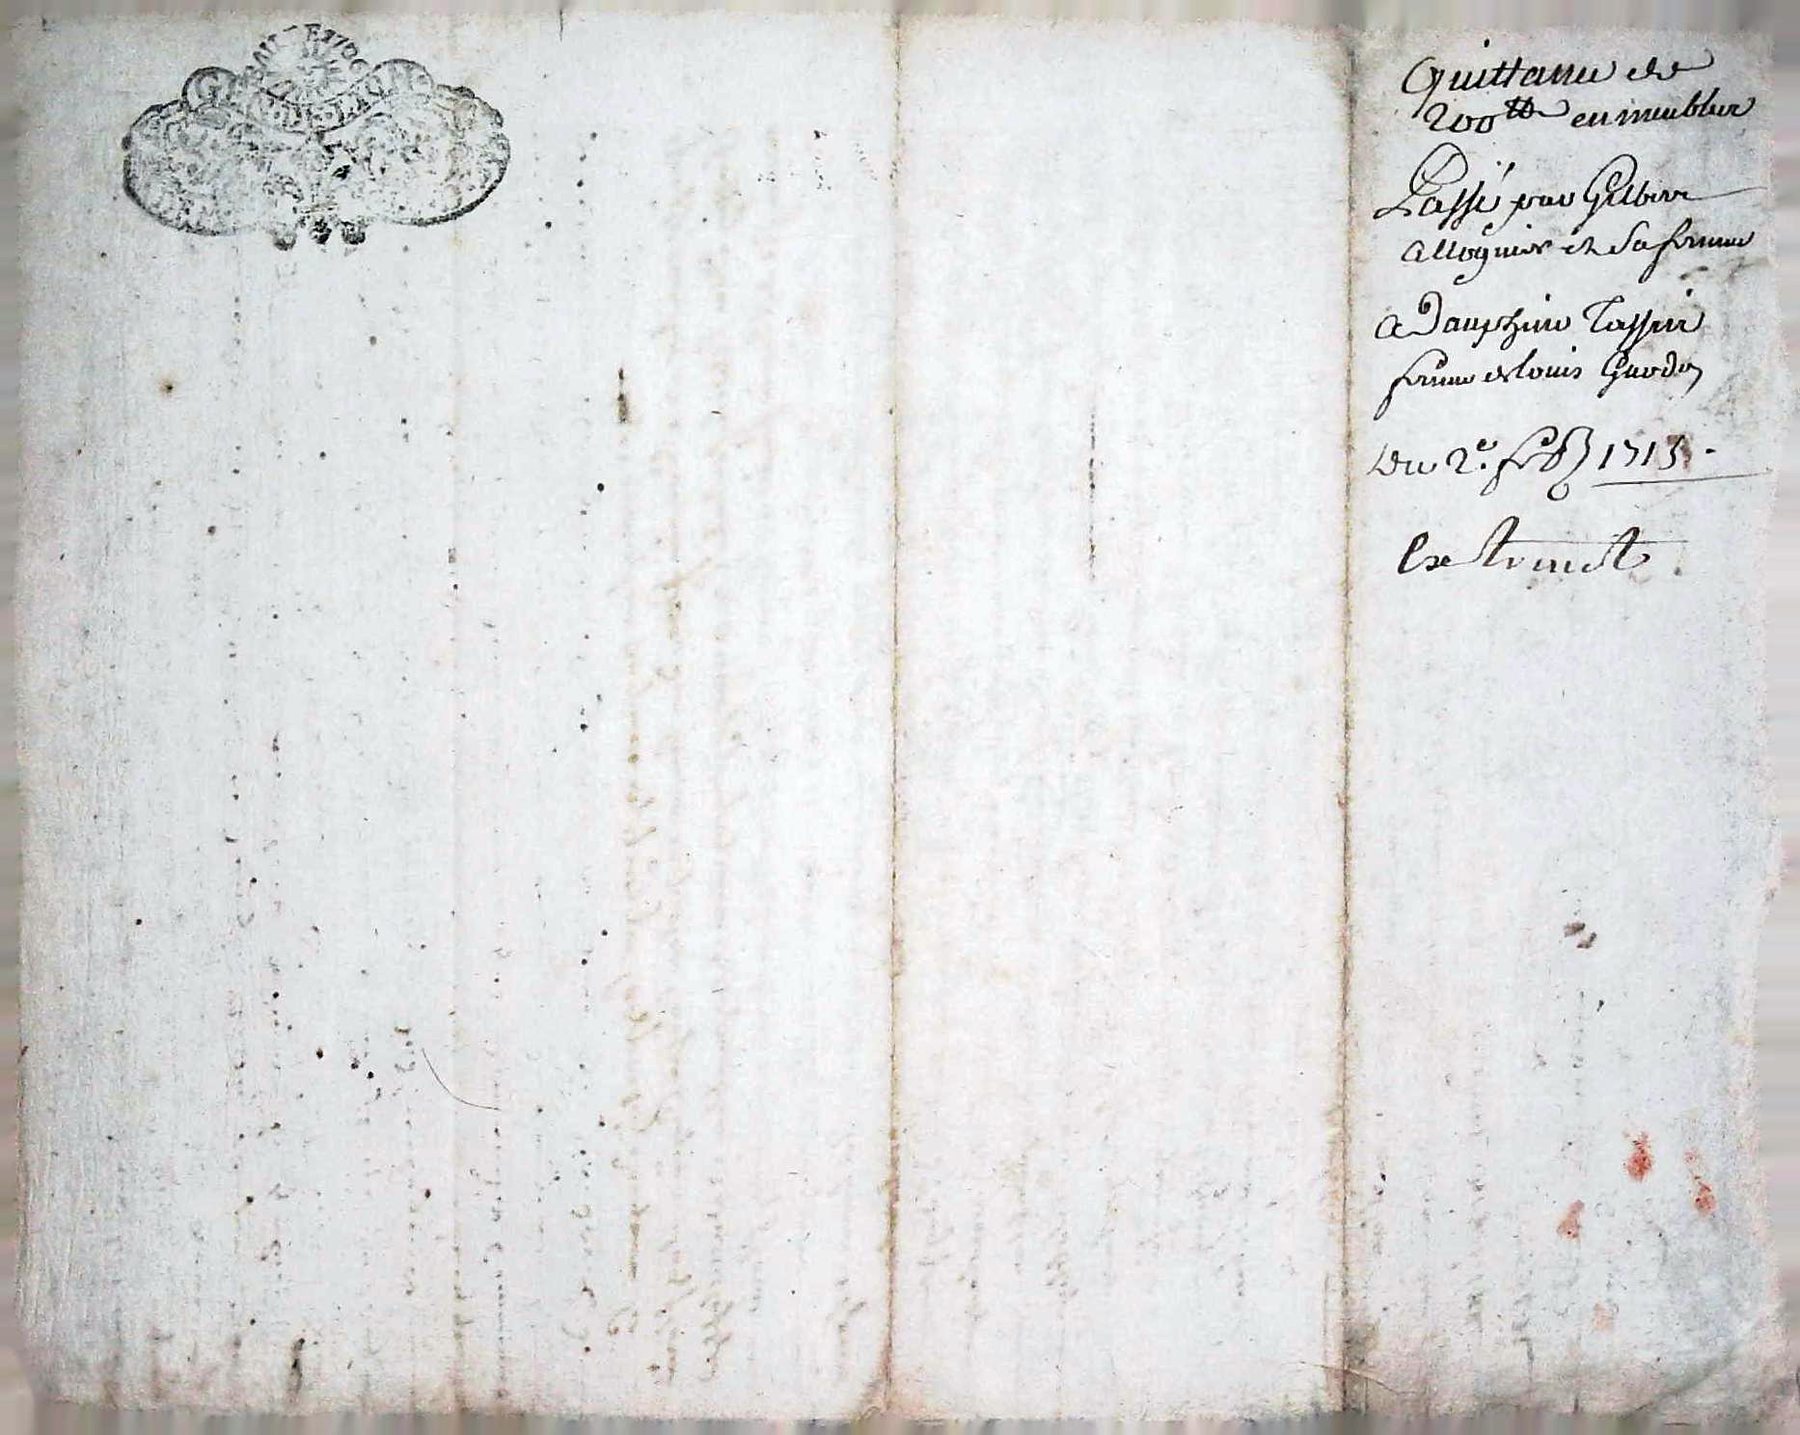 Quittance de
200ᵗᵗ en meubles
Passé par Gilbert
allognier et sa femme
a Dauphine Tassin
femme de louis Guodon
Du 2ᵉ 1713.
Extraict